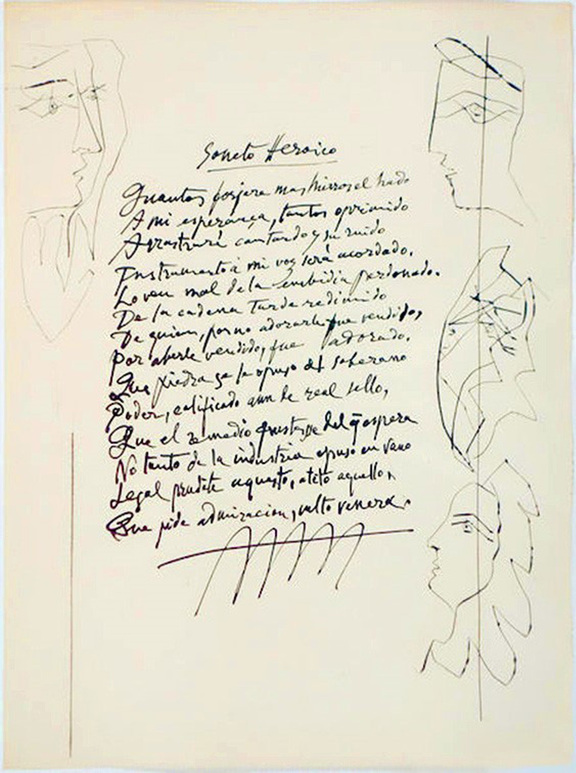 Soneto Heroico
Quantos forjare mas hierros el hado
A mi esperança, tantos oprimido
Arrastraré cantando y su ruido
Instrumento à mi voz será acordado.
Joven mal de la embidia perdonado.
De la cadena tarde redimido
De quien, por no adorarle fue vendido,
Por aberle vendido, fue adorado.
Que piedra se le opuso del soberano
Poder, calificado aun de real sello,
Que el remedio frustasse del q espera
No tanto de la industria opuso en vano
Legal prudete aquesto, ateto aquello,
Que pide admiracion, culto venera.